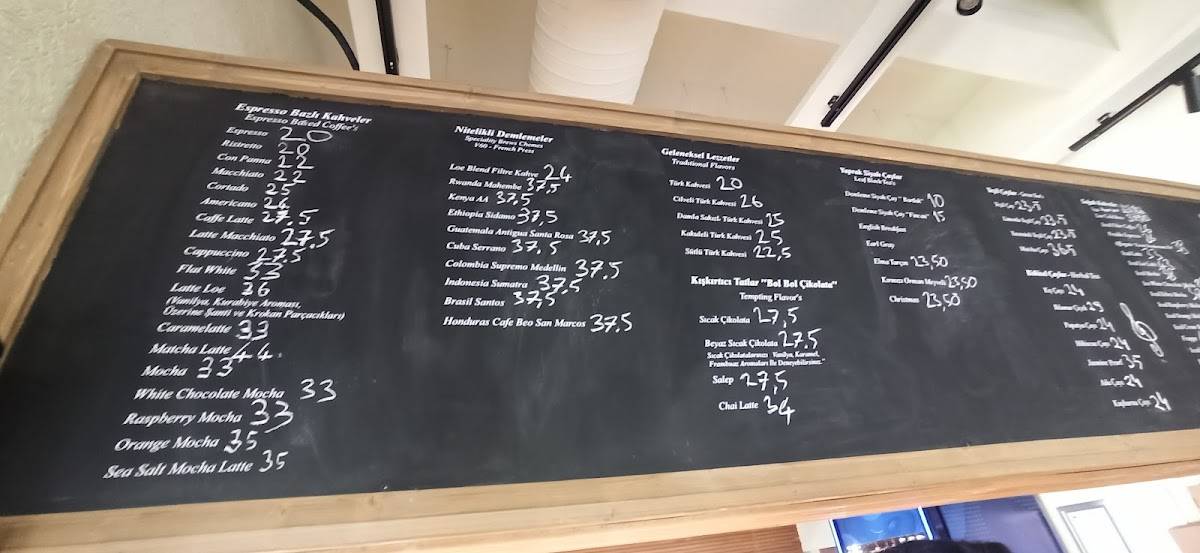 Espresso Bazlı Kahveler
Espresso Based Coffee's
Espresso 20
Ristretto 20
Con Panna 22
Macchiato 22
Cortado 25
Americano 26
Caffe Latte 27.5
Latte Macchiato 27.5
Cappuccino 27.5
Flat White 33
Latte Loe 36
(Vanilya, Kurabiye Aroması,
Üzerine Şanti ve Krokan Parçacıkları)
Caramelatte 33
Matcha Latte 44.
Mocha 33
White Chocolate Mocha 33
Raspberry Mocha 33
Orange Mocha 35
Sea Salt Mocha Latte 35
Nitelikli Demlemeler
Speciality Brews Chemex
V60 - French Press
Loe Blend Filtre Kahve 24
Rwanda Mahembe 37,5
Kenya AA 37.5
Ethiopia Sidamo 37,5
Guatemala Antigua Santa Rosa 37,5
Cuba Serrano 37,5
Colombia Supremo Medellin 37,5
Indonesia Sumatra 37.5
Brasil Santos 37,5
Honduras Cafe Beo San Marcos 37.5
Geleneksel Lezzetler
Traditional Flavors
Türk Kahvesi 20
Cilveli Türk Kahvesi 26
Damla Sakızlı Türk Kahvesi 25
Kakuleli Türk Kahvesi 25
Sütlü Türk Kahvesi 22,5
Kışkırtıcı Tatlar "Bol Bol Çikolata"
Tempting Flavor's
Sıcak Çikolata 27,5
Beyaz Sıcak Çikolata 27.5
Sıcak Çikolatalarımızı Vanilya, Karamel,
Frambuaz Aromaları İle Deneyebilirsiniz."
Salep 27,5
Chai Latte 34
Yaprak Siyah Çaylar
Leaf Black Tea's
Demleme Siyah Çay "Bardak" 10
Demleme Siyah Çay "Fincan" 15
English Breakfast
Earl Grey
Elma Tarçın 23,50
Kırmızı Orman Meyveli 23,50
Christmas 23,50
Yeşil Çaylar - Green Tea's
Yeşil Çay 23,5
23,5
23,5
36.5
Bitkisel Çaylar - Herbal Tea
Kış Çayı 24
25
Papatya Çayı 24
Hibiscus Çayı 24
Jasmine Pearl 35
Ada Çayı 24
Kuşburnu Çayı 24
Soğuk Kahveler